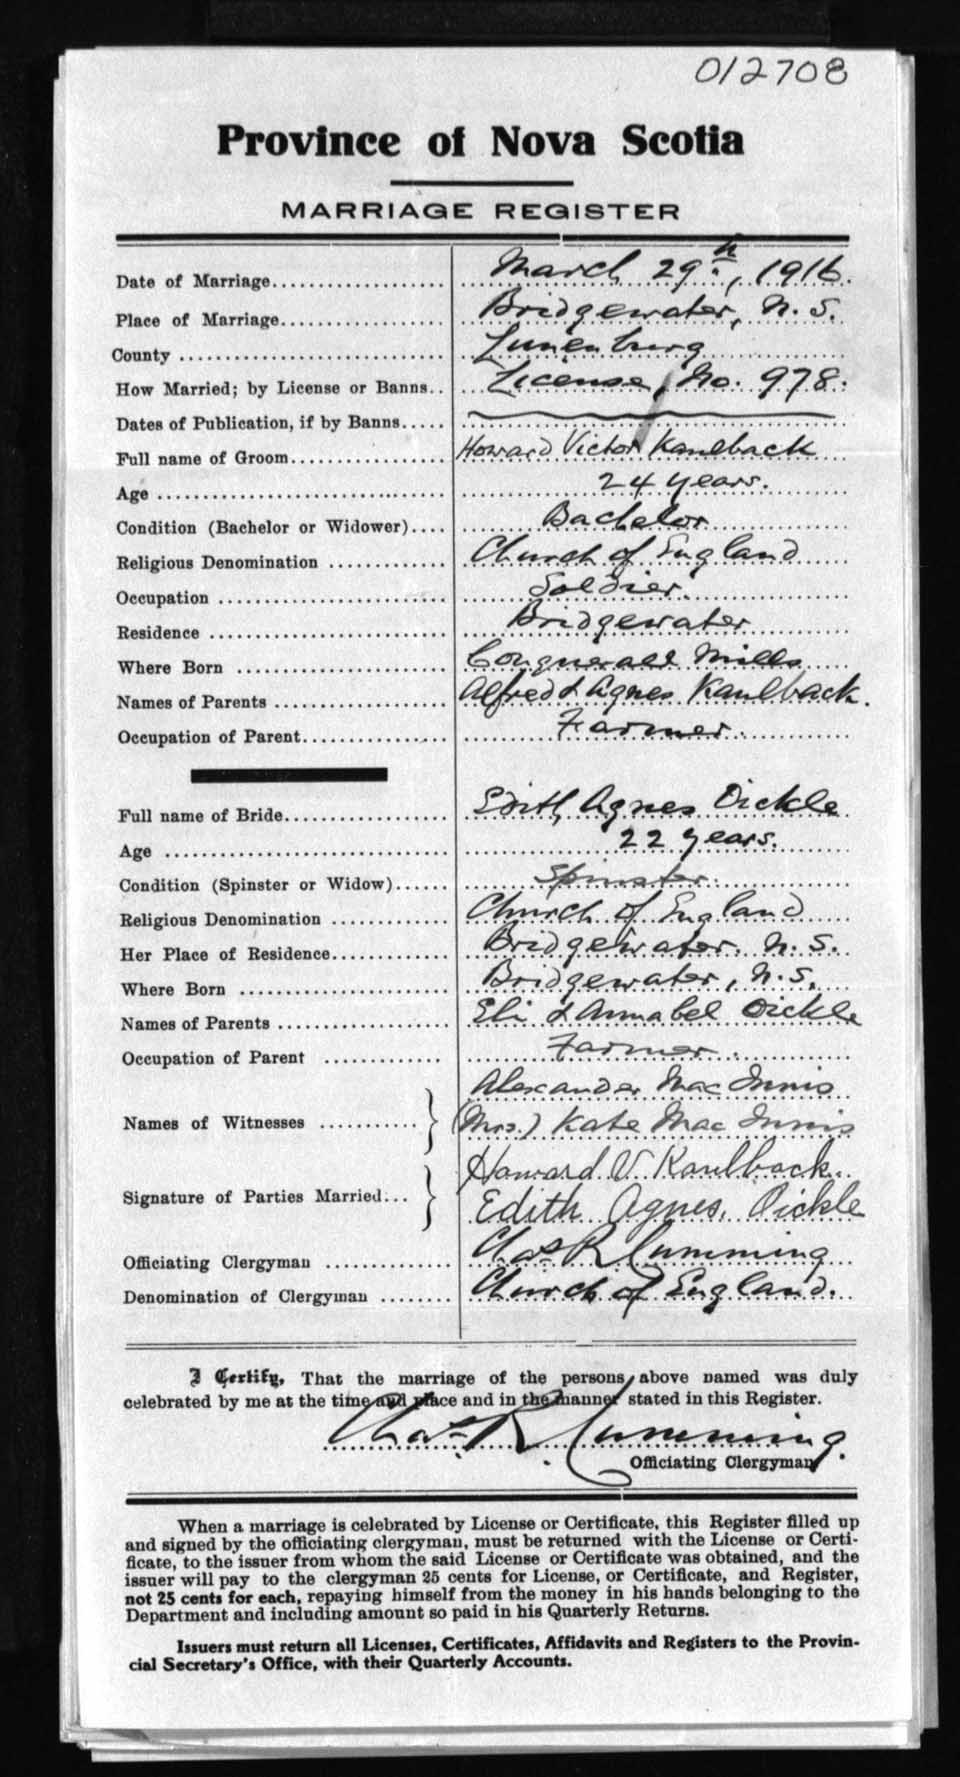 012708
Province of Nova Scotia
MARRIAGE REGISTER
Date of Marriage.................... March 29th, 1916.
Place of Marriage.................. Bridgewater, N.S.
County ............................ Lunenburg
How Married; by License or Banns.. License, No. 978.
Dates of Publication, if by Banns.....
Full name of Groom.................. Howard Victor Kaulback
Age ............................... 24 years.
Condition (Bachelor or Widower).... Bachelor
Religious Denomination ............. Church of England
Occupation ......................... Soldier.
Residence .......................... Bridgewater
Where Born ....................... Conquerall Mills
Names of Parents ................... Alfred & Agnes Kaulback.
Occupation of Parent................ Farmer.
Full name of Bride.................. Edith Agnes Oickle
Age ............................... 22 years.
Condition (Spinster or Widow)...... Spinster.
Religious Denomination ............. Church of England
Her Place of Residence.............. Bridgewater. N.S.
Where Born ......................... Bridgewater, N.S.
Names of Parents ................... Eli & Annabel Oickle
Occupation of Parent ............. Farmer.
Names of Witnesses ........... } Alexander MacInnis
(Mrs.) Kate MacInnis
Signature of Parties Married... } Howard V. Kaulback.
Edith Agnes Oickle
Officiating Clergyman .............. Chas R Cumming
Denomination of Clergyman ........ Church of England.
I Certify, That the marriage of the persons above named was duly
celebrated by me at the time and place and in the manner stated in this Register.
Chas. R. Cumming.
Officiating Clergyman
When a marriage is celebrated by License or Certificate, this Register filled up
and signed by the officiating clergyman, must be returned with the License or Certi-
ficate, to the issuer from whom the said License or Certificate was obtained, and the
issuer will pay to the clergyman 25 cents for License, or Certificate, and Register,
not 25 cents for each, repaying himself from the money in his hands belonging to the
Department and including amount so paid in his Quarterly Returns.
Issuers must return all Licenses, Certificates, Affidavits and Registers to the Provin-
cial Secretary's Office, with their Quarterly Accounts.